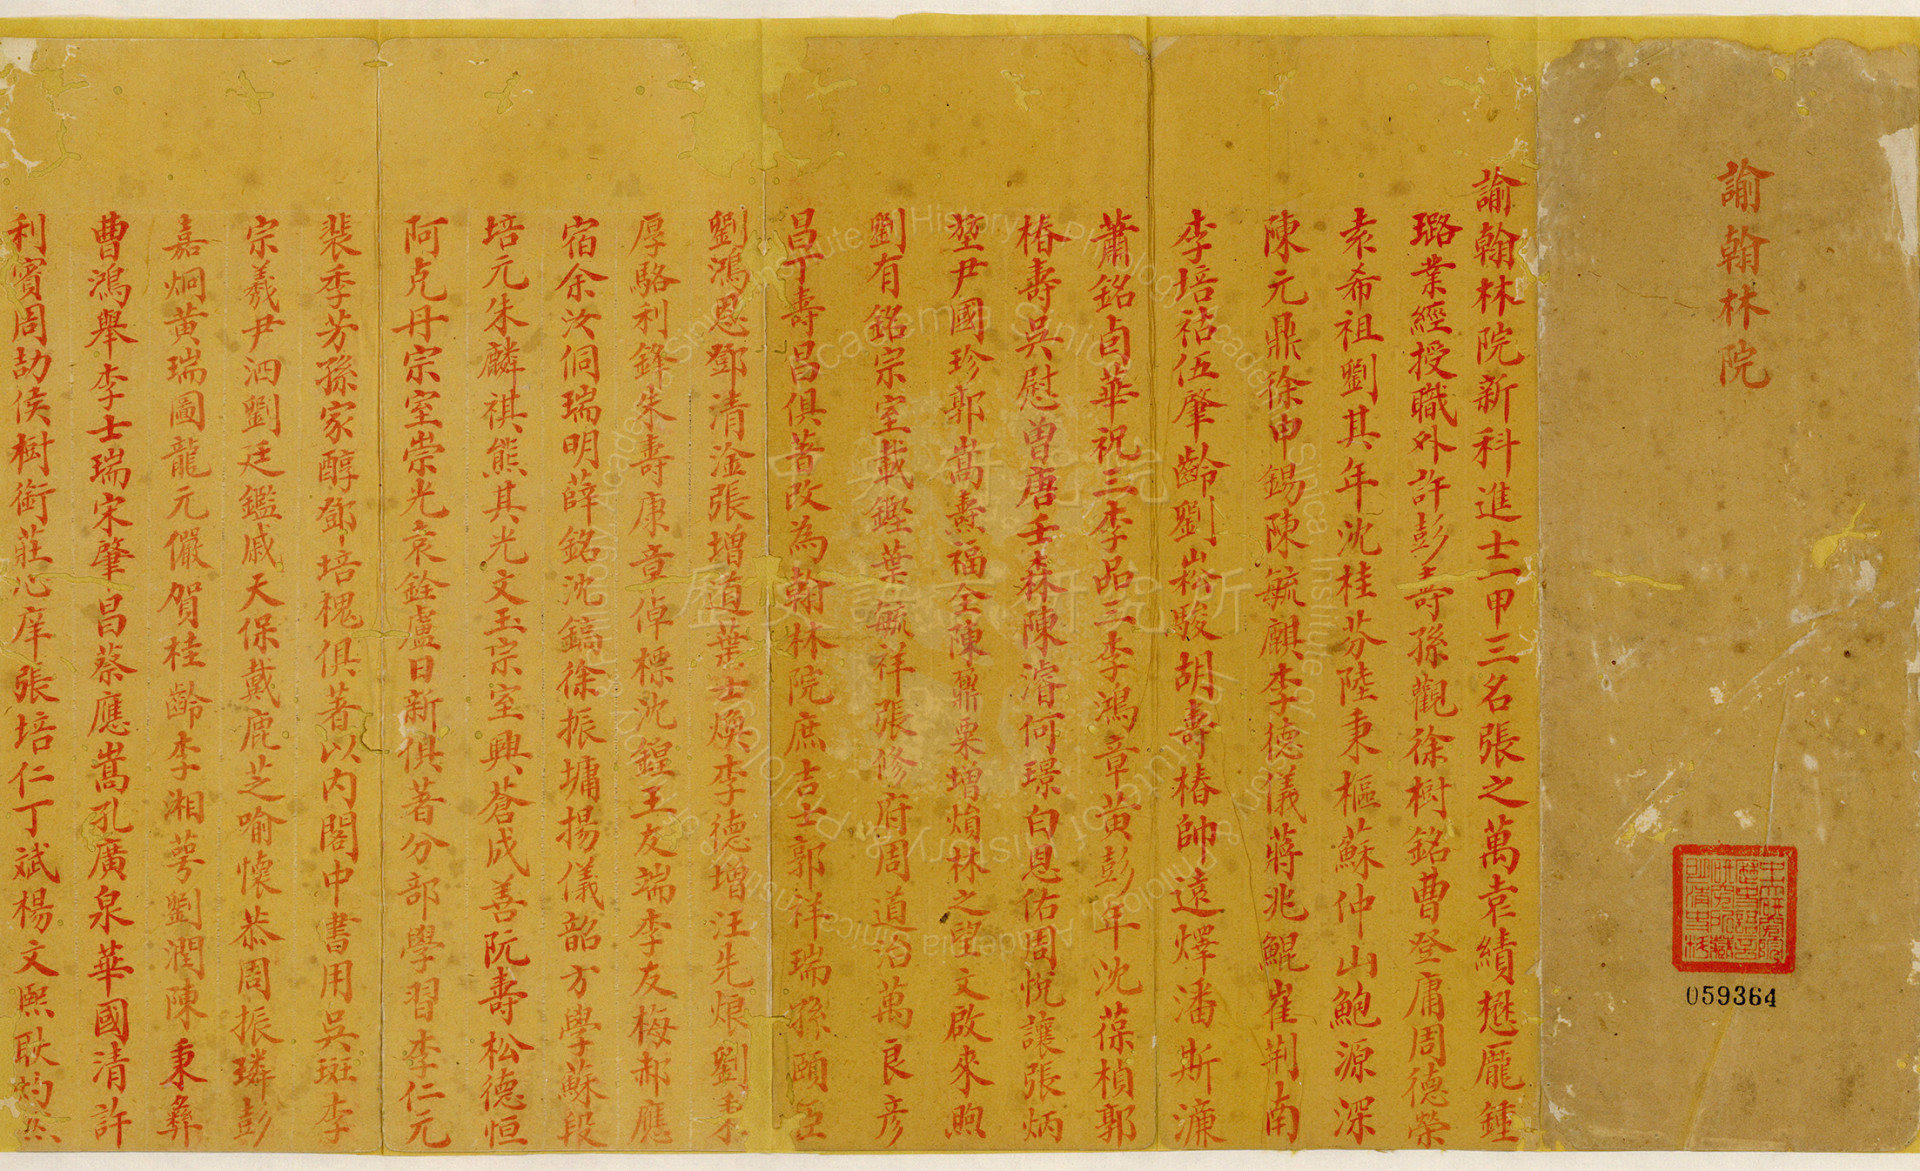 諭翰林院
059364
諭翰林院新科進士一甲三名張之萬袁績懋龐鍾
璐業經授職外許彭壽孫觀徐樹銘曹登庸周德榮
袁希祖劉其年沈桂芬陸秉樞蘇仲山鮑源深
陳元鼎徐申錫陳毓麒李德儀蔣兆鯤崔荊南
李培祜伍肇齡劉崧駿胡壽椿帥遠燡潘斯濂
蕭銘卣華祝三李品三李鴻章黃彭年沈葆楨郭
椿壽吳慰曾唐壬森陳濬何璟白恩佑周悅讓張炳
堃尹國珍郭嵩燾福全陳鼐栗增熉林之望文啟來煦
劉有銘宗室載鏗葉毓祥張修府周道治萬良彥
昌丁壽昌俱著改為翰林院庶吉士郭祥瑞孫頤臣
劉鴻恩鄧清淦張增道葉士煥李德增汪先烺劉
厚駱利鋒朱壽康章倬標沈鍠王友端李友梅郝應
宿余汝侗瑞明薛銘沈鎬徐振墉揚儀韶方學蘇段
培元朱麟祺熊其光文玉宗室興蒼成善阮壽松德恒
阿克丹宗室崇光袁銓盧日新俱著分部學習李仁元
裴季芳孫家醇鄧培槐俱著以內閣中書用吳斑李
宗羲尹泗劉廷鑑戚天保戴鹿芝喻懷恭周振璘彭
嘉炯黃瑞圖龍元儼賀桂齡李湘萼劉潤陳秉彝
曹鴻舉李士瑞宋肇昌蔡應嵩孔廣泉華國清許
利賓周劼侯樹銜莊心庠張培仁丁斌楊文熙耿灼然
中央研究院
歷史語言研究所
Academia Sinica
Institute of History & Philology